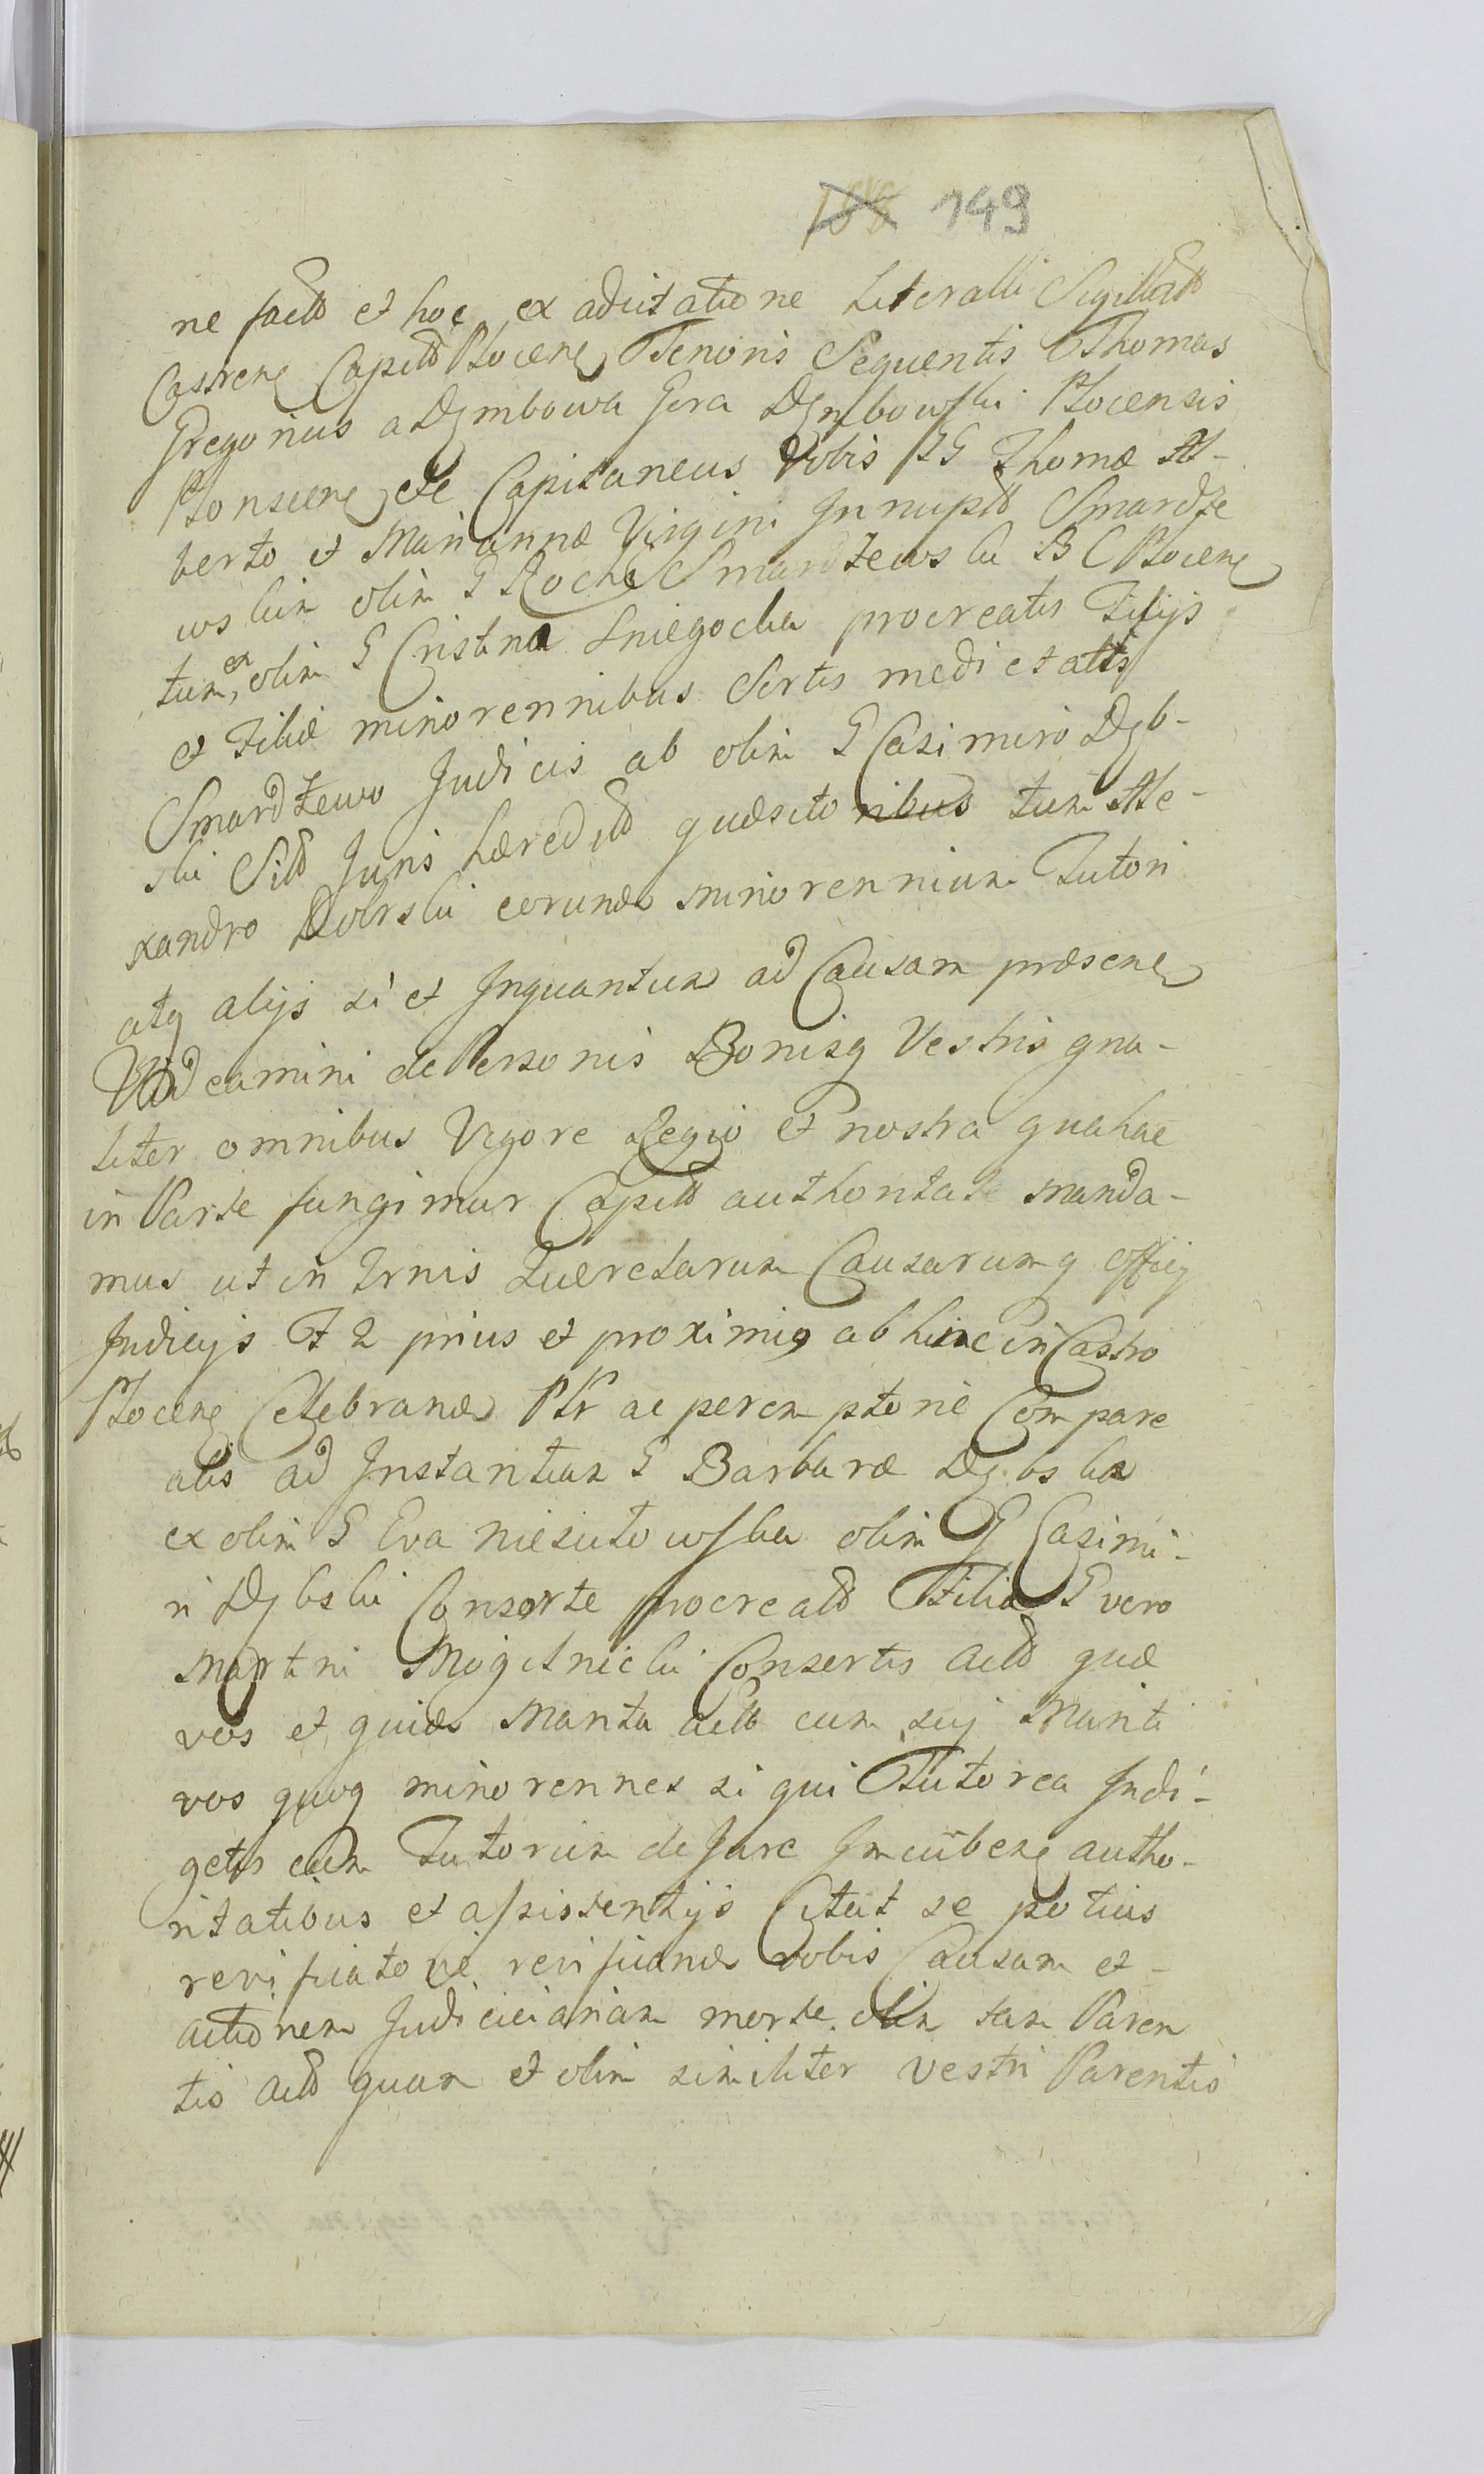 188 149
ne factt et hoc ex adcitatione Literalli Sigillatt
Castrenς Capittt Plocenς Tenoris Sequentis Thomas
Gregorius a Dęmbowa Gora Dęmbowski Plocensis
Plonscenς ete Capitaneus Vobis GG Thomæ Al-
berto et Mariannæ Virgini Innuptt Smardze
wskim olim G Rocho Smardzewski B C Plocenς
tum ex, olim G Cristina Sniegocka procreatis Filijs
et Filiæ minorennibus Sortis medietatis
Smardzewo Judicis ab olim G Casimiro Dęb-
ski Sitt Juris hæreditt quæsitoribus tum Ale-
xandro Dobrski eorunde minorennium Tutori
atq alijs si et Inquantum ad Causam præsenς
Videamini de Personis Bonisq Vestris gna-
liter omnibus Vigore Regio et nostra qua hac
in Parte fungimur Capitt authoritate manda-
mus ut in Trnis Quærelarum Causarumq officij
Judicijs F 2 prius et proximis abhinc in Castro
Plocenς Celebrand Pltr ac peremptorie Compare
atis ad Instantiam G Barbaræ Dębska
ex olim G Eva Niesiutowska olim G Casimi-
ri Dębski Consorte procreatt Filia G vero
Martini Mogilnicki Consortis Actt quæ
vos et quide Marita actt cum suj Mariti
vos quoq minorennes si qui Tutorea Indi-
getis cum Tutorum de Jure Incumbenς autho-
ritatibus et assistentijs Citat se potius
reripiatove reripiand vobis Causam et-
actionem Judiciciariam morte olim tam Paren
tis Actt quam et olim similiter vestri Parentis